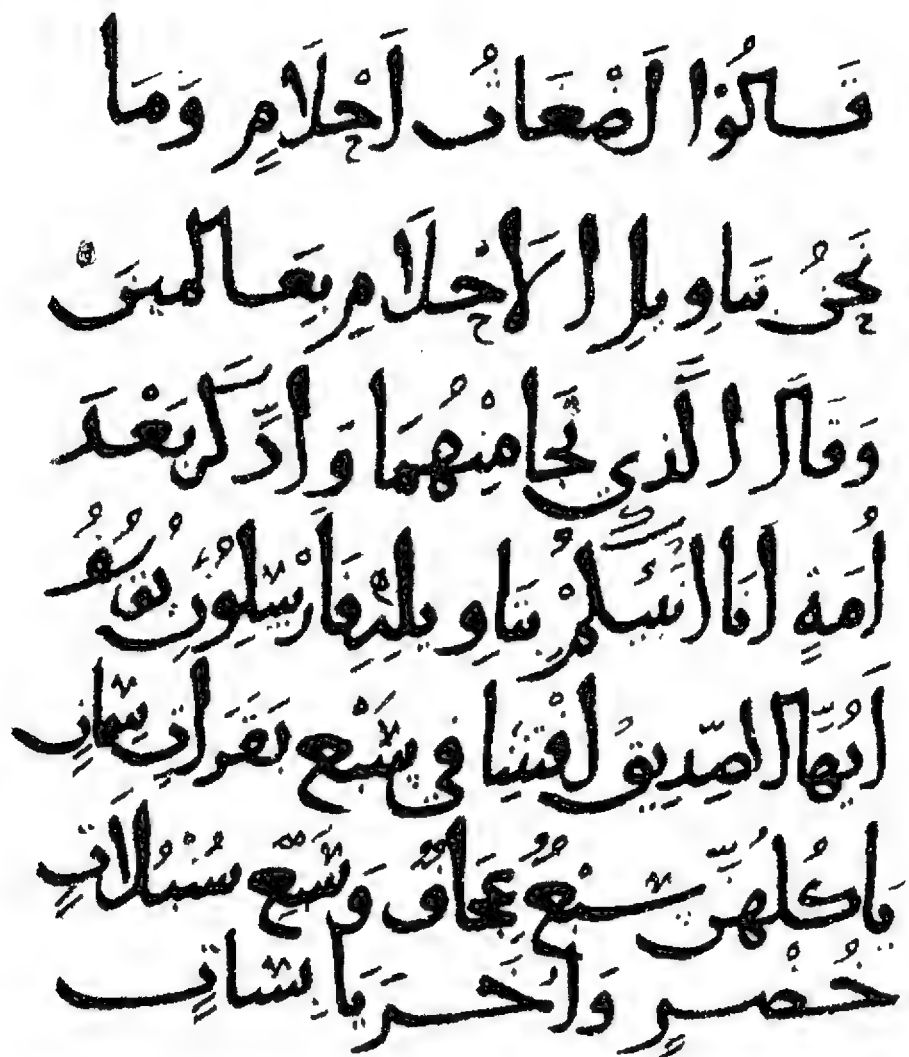 قَالُوا اَضْغَاثُ اَحْلَامٍ وَمَا
نَحْنُ بِتَاوِيلِ الْاَحْلَامِ بِعَالِمِينَ
وَقَالَ الَّذِي نَجَا مِنْهُمَا وَادَّكَرَ بَعْدَ
اُمَّةٍ اَنَا اُنَبِّئُكُمْ بِتَاوِيلِهِ فَاَرْسِلُونِ يُوسُفُ
اَيُّهَا الصِّدِّيقُ اَفْتِنَا فِي سَبْعِ بَقَرَاتٍ سِمَانٍ
يَاكُلُهُنَّ سَبْعٌ عِجَافٌ وَسَبْعِ سُنْبُلَاتٍ
خُضْرٍ وَاُخَرَ يَابِسَاتٍ